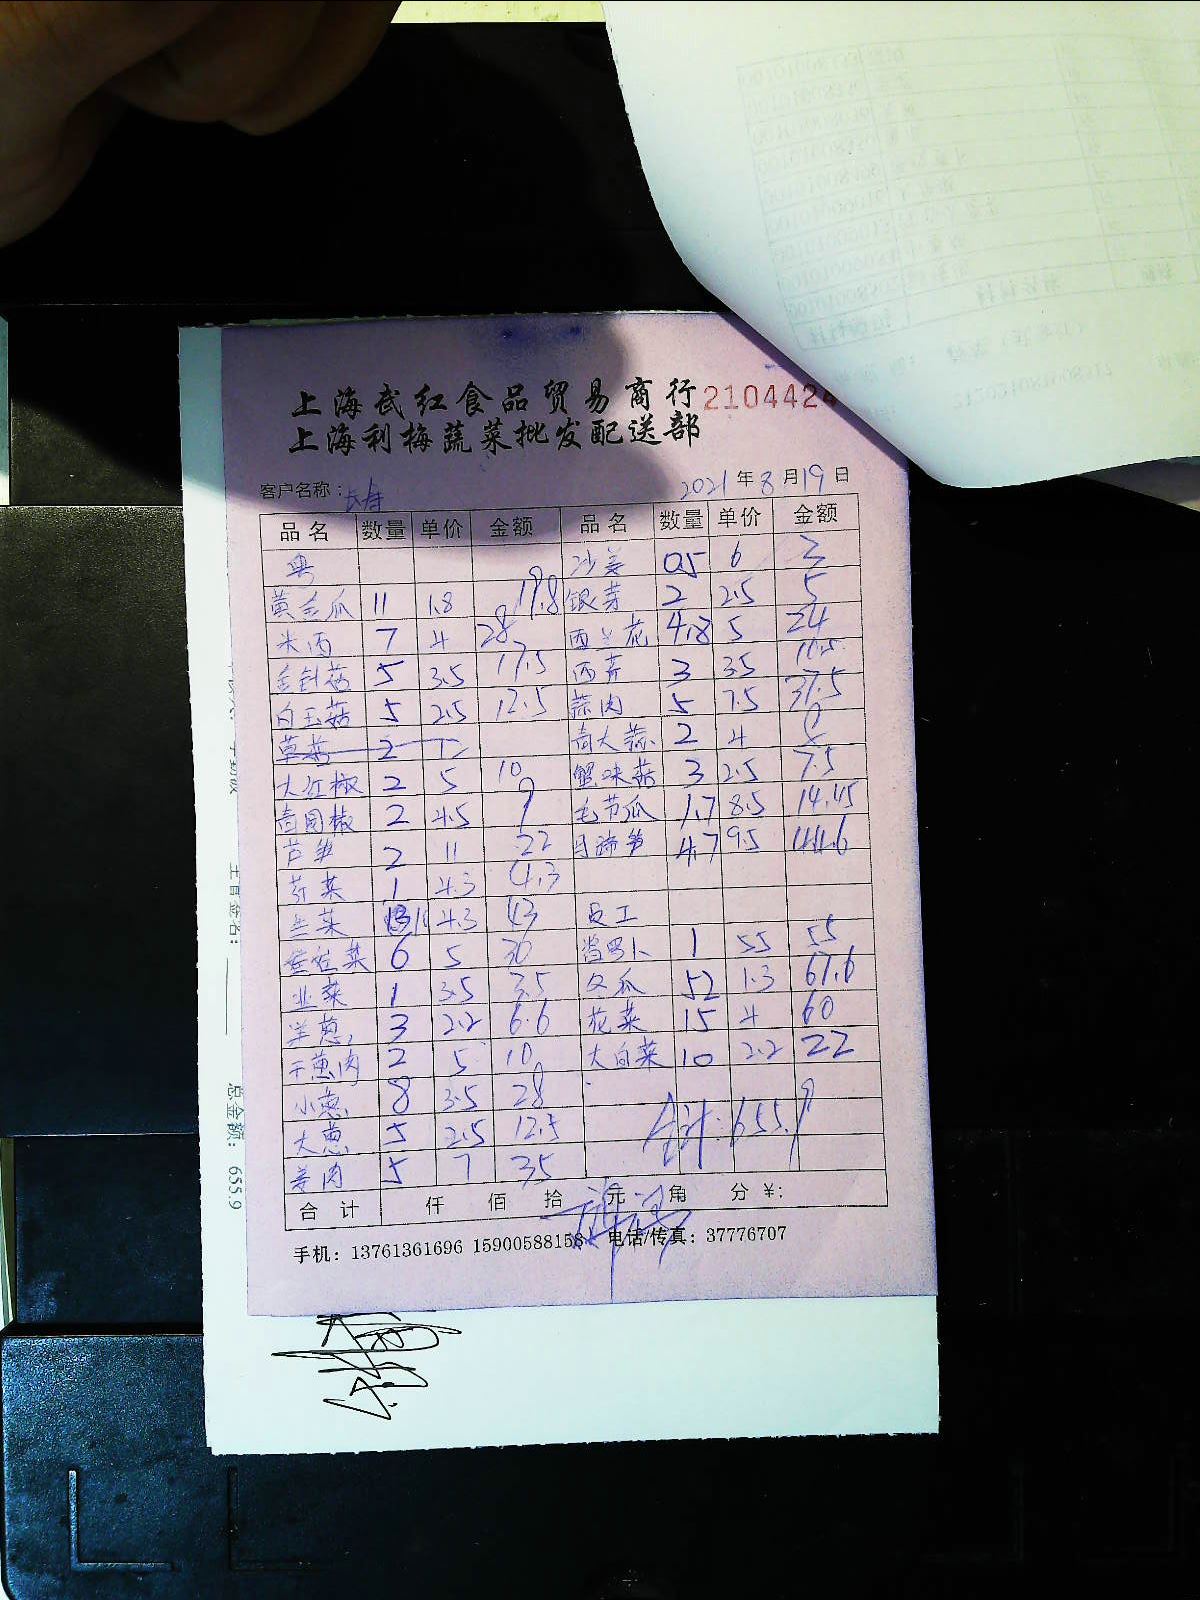 上海武红食品贸易商行 2104424
上海利梅蔬菜批发配送部
客户名称: 长寿 2021年8月19日
品名 数量 单价 金额 品名 数量 单价 金额
粤 沙姜 0.5 6 3
黄金瓜 11 1.8 19.8 银芽 2 2.5 5
米丙 7 4 28 西兰花 4.8 5 24
金针菇 5 3.5 17.5 西芹 3 3.5 10.5
白玉菇 5 2.5 12.5 蒜肉 5 7.5 37.5
草菇 2 12 青大蒜 2 4 8
大红椒 2 5 10 蟹味菇 3 2.5 7.5
青圆椒 2 4.5 9 毛节瓜 1.7 8.5 14.45
芦笋 2 11 22 马蹄笋 4.7 9.5 44.6
芥菜 1 4.3 4.3
生菜 4.3 43 员工
6 5 30 1 55 55
韭菜 1 3.5 3.5 冬瓜 52 1.3 67.6
洋葱 3 2.2 6.6 花菜 15 4 60
干葱肉 2 5 10 大白菜 10 2.2 22
小葱 8 3.5 28
大葱 5 2.5 12.5 合计:655.9
姜肉 5 7 35
合计 仟 佰 拾 元 角 分 ¥:
手机: 13761361696 15900588158 电话/传真: 37776707
总金额: 655.9